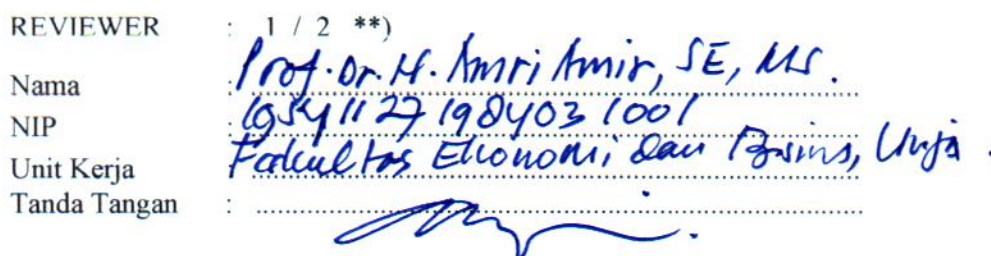 REVIEWER : 1 / 2 **)
Nama : Prof. Dr. H. Amri Amir, SE, MS.
NIP : 195411271984031001
Unit Kerja Fakultas Ekonomi dan Bisnis, Unja.
Tanda Tangan :